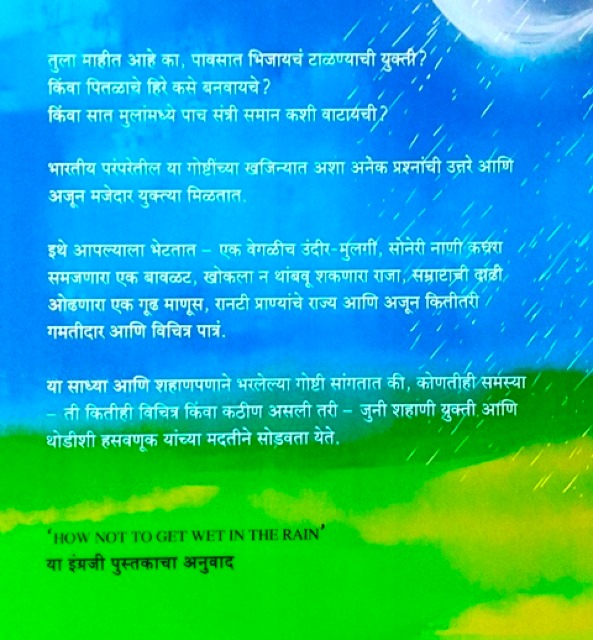 तुला माहीत आहे का, पावसात भिजायचं टाळण्याची युक्ती?
किंवा पितळाचे हिरे कसे बनवायचे?
किंवा सात मुलांमध्ये पाच संत्री समान कशी वाटायची?
भारतीय परंपरेतील या गोष्टींच्या खजिन्यात अशा अनेक प्रश्नांची उत्तरे आणि
अजून मजेदार युक्त्या मिळतात.
इथे आपल्याला भेटतात – एक वेगळीच उंदीर-मुलगी, सोनेरी नाणी कचरा
समजणारा एक बावळट, खोकला न थांबवू शकणारा राजा, सम्राटाची दाढी
ओढणारा एक गूढ माणूस, रानटी प्राण्यांचे राज्य आणि अजून कितीतरी
गमतीदार आणि विचित्र पात्रं.
या साध्या आणि शहाणपणाने भरलेल्या गोष्टी सांगतात की, कोणतीही समस्या
– ती कितीही विचित्र किंवा कठीण असली तरी – जुनी शहाणी युक्ती आणि
थोडीशी हसवणूक यांच्या मदतीने सोडवता येते.
'HOW NOT TO GET WET IN THE RAIN'
या इंग्रजी पुस्तकाचा अनुवाद